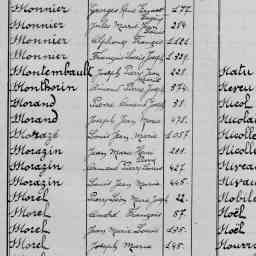 Monnier Georges René Ernest 177.
Eugène
Monnier Jules Marie 284.
Monnier Alphonse François 1.121.
Monnier François Louis Joseph 1.329.
Montembault Joseph Pierre Jean 221. Natu
Monthorin Armand Pierre 374. Neveu
Morand Pierre Armand Joseph 51. Nicol
Morand Joseph Jean Marie 478. Nicolas
Morazé Louis Jean Marie 1.057. Nicolle
Morazin Jean Marie 281. Nicolle
Pierre
Morazin Armand Pierre Louis 427. Niveau
Morazin Louis Jean Marie 445. Nivau
Morel Pierre Marie Joseph 22. Nobile
Morel André François 57. Noël
Morel Jean Marie Louis 135. Noël
Morel Joseph Marie 145. Nourry